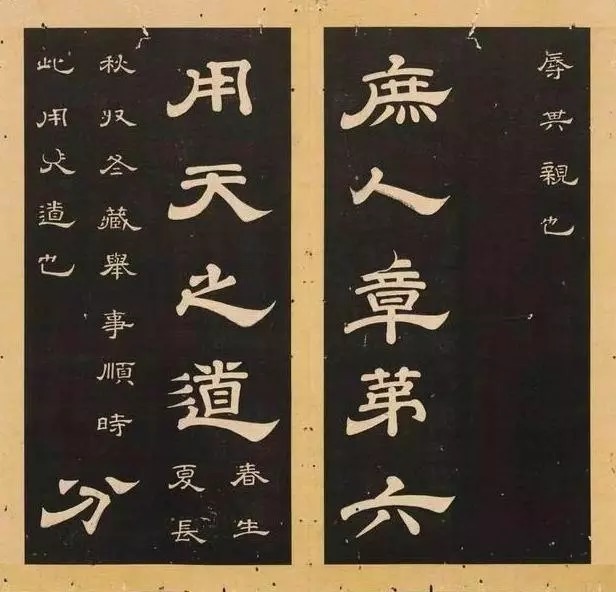 辱其親也
庶人章第六
用天之道
春生
夏長
秋收冬藏舉事順時
此用天道也
分